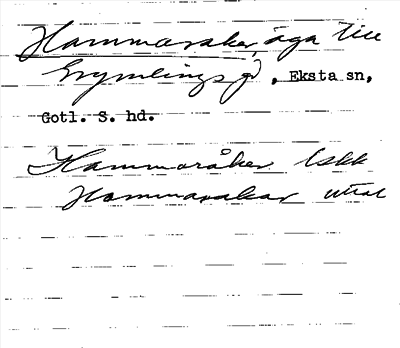 Hammaraker, äga till
Grymlings, Eksta sn,
Gotl. S. hd.
Hammaråker Iskk
Hammarakar uttal